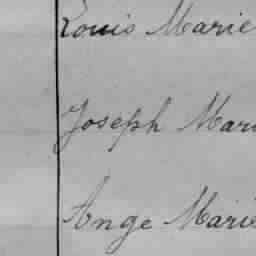 Louis Marie
Joseph Mari
Ange Marie